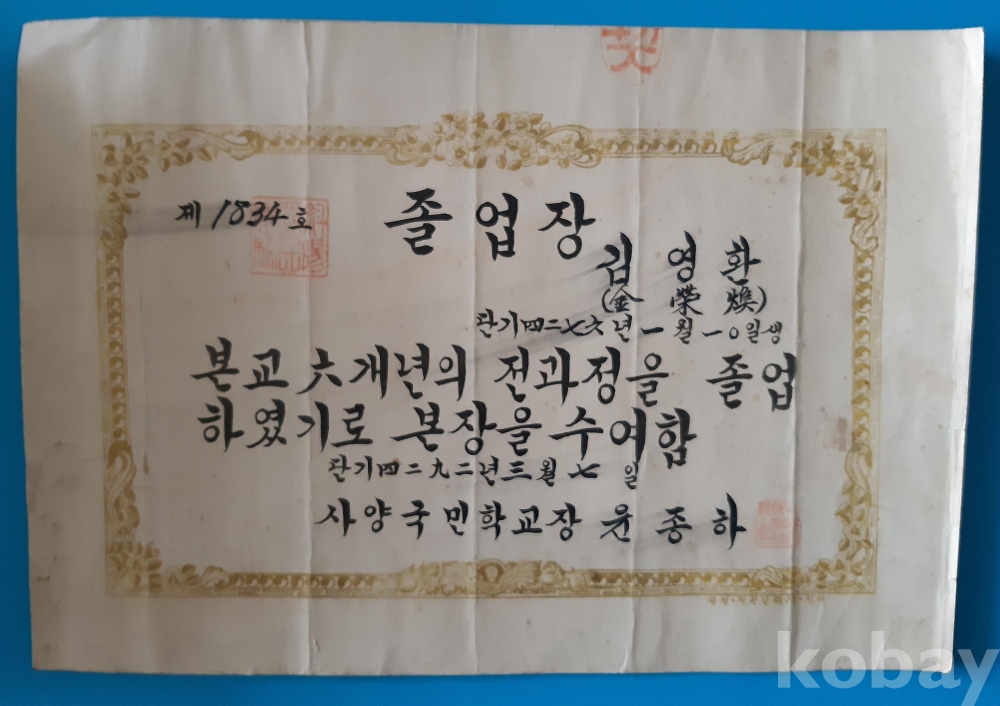 契
제 1834 호
졸업장
김영환
(金榮煥)
단기四二七六년一월一０일생
본교六개년의 전과정을 졸업
하였기로 본장을 수여함
단기四二九二년三월七일
사양국민학교장 윤종하
kobay